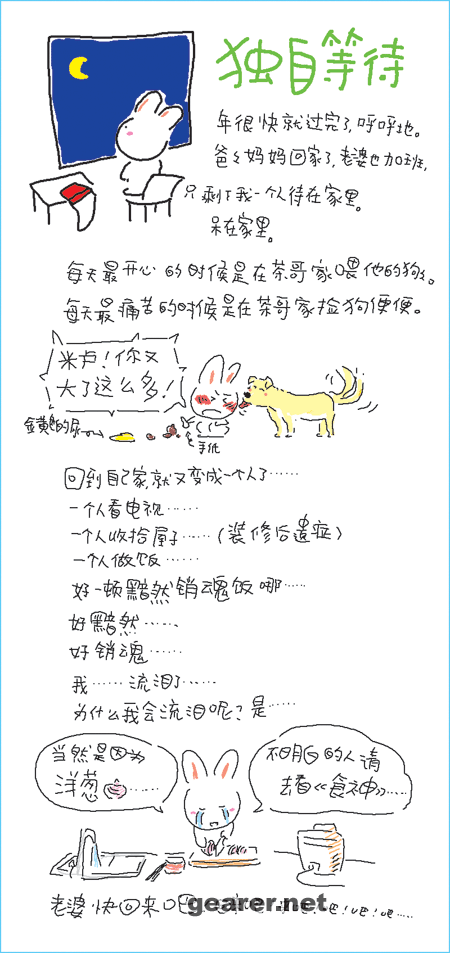 独自等待
年很快就过完了,呼呼地。
爸々妈妈回家了,老婆也加班,
只剩下我一个人待在家里。
呆在家里。
每天最开心的时候是在茶哥家喂他的狗。
每天最痛苦的时候是在茶哥家捡狗便便。
米卢!你又
大了这么多!
黄色的尿
手纸
回到自己家,就又变成一个人了……
一个人看电视……
一个人收拾屋子……(装修后遗症)
一个人做饭……
好一顿黯然销魂饭哪……
好黯然……
好销魂……
我……流泪了……
为什么我会流泪呢?是……
当然是因为
洋葱……
不明白的人请
去看《食神》……
老婆快回来吧
吧!吧!吧……
gearer.net